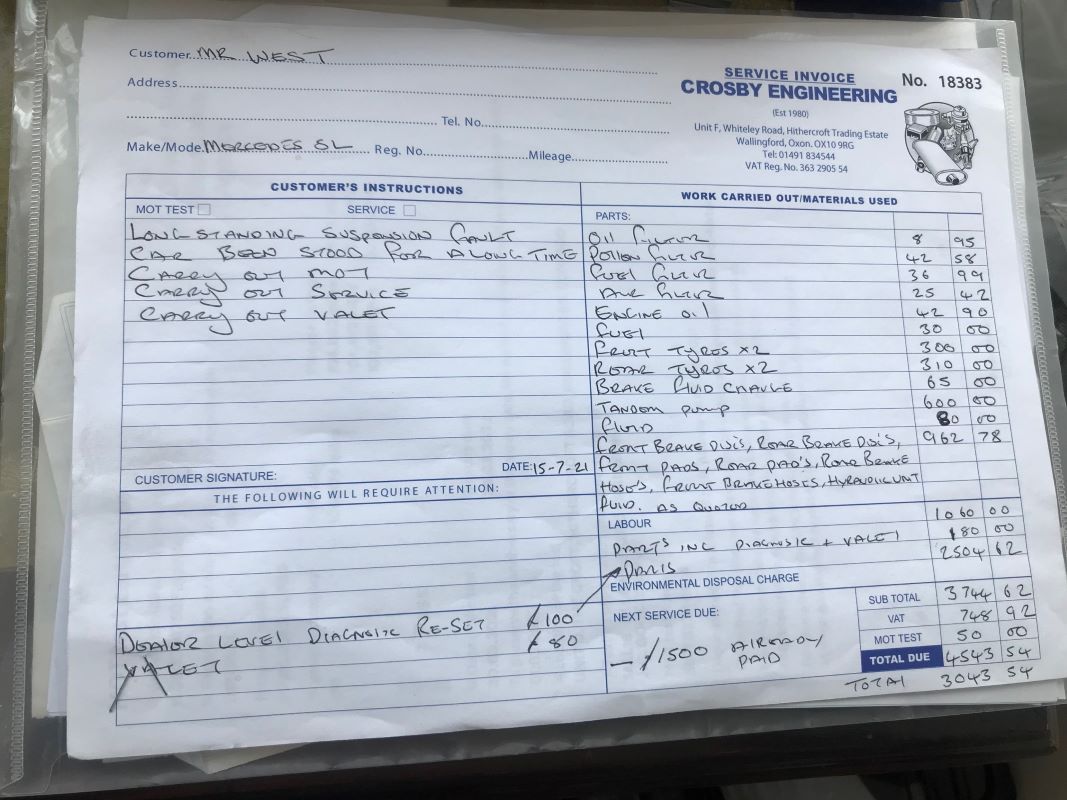 Customer MR WEST
SERVICE INVOICE
No. 18383
CROSBY ENGINEERING
Address
(Est 1980)
Tel. No.
Unit F, Whiteley Road, Hithercroft Trading Estate
Wallingford, Oxon. OX10 9RG
Tel: 01491 834544
VAT Reg. No. 363 2905 54
Make/Mode. MERCEDES SL Reg. No. Mileage
CUSTOMER'S INSTRUCTIONS
MOT TEST SERVICE
LONG STANDING SUSPENSION FAULT
CAR BEEN STOOD FOR A LONG TIME
CARRY OUT MOT
CARRY OUT SERVICE
CARRY OUT VALET
CUSTOMER SIGNATURE: DATE: 15-7-21
THE FOLLOWING WILL REQUIRE ATTENTION:
DEALER LEVEL DIAGNOSTIC RE-SET £100
VALET £80
WORK CARRIED OUT/MATERIALS USED
PARTS:
OIL FILTER 8 95
POLLEN FILTER 42 58
FUEL FILTER 36 99
AIR FILTER 25 42
ENGINE OIL 42 90
FUEL 30 00
FRONT TYRES x2 300 00
REAR TYRES x2 310 00
BRAKE FLUID CHANGE 65 00
TANDEM PUMP 600 00
FLUID 80 00
FRONT BRAKE DISC'S, REAR BRAKE DISC'S, 962 78
FRONT PADS, REAR PAD'S, REAR BRAKE
HOSE'S, FRONT BRAKE HOSES, HYDRAULIC UNIT
FLUID. AS QUOTED
LABOUR 1060 00
PARTS INC DIAGNOSIC + VALET 180 00
PARTS 2504 62
ENVIRONMENTAL DISPOSAL CHARGE
NEXT SERVICE DUE:
SUB TOTAL 3744 62
VAT 748 92
MOT TEST 50 00
- £1500 ALREADY
PAID
TOTAL DUE 4543 54
TOTAL 3043 54